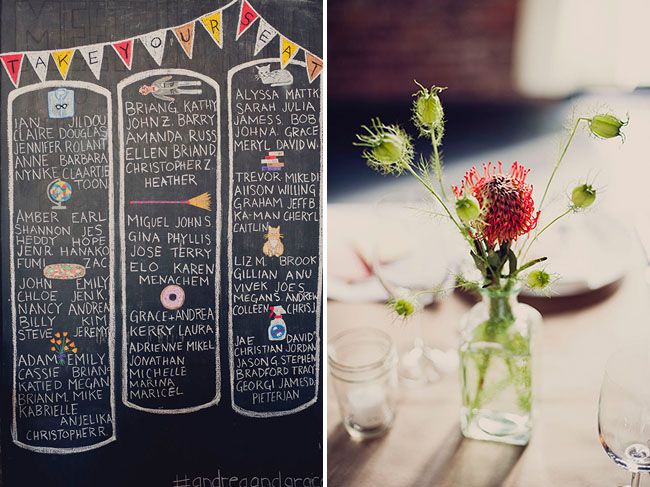 TAKE YOUR SEAT
IAN JILDOU
CLAIRE DOUGLAS
JENNIFER ROLANT
ANNE BARBARA
NYNKE CLAARTJE
TOON
AMBER EARL
SHANNON JES
HEDDY HOPE
JENR HANAKO
FUMI ZAC
JOHN EMILY
CHLOE JEN K.
NANCY ANDREA
BILLY KIM
STEVE JEREMY
ADAM EMILY
CASSIE BRIAN
KATIE D MEGAN
BRIAN M. MIKE
KABRIELLE
ANJELIKA
CHRISTOPHER R.
BRIAN G. KATHY
JOHN Z. BARRY
AMANDA RUSS
ELLEN BRIAN D
CHRISTOPHER Z.
HEATHER
MIGUEL JOHN S.
GINA PHYLLIS
JOSE TERRY
ELO KAREN
MENACHEM
GRACE+ANDREA
KERRY LAURA
ADRIENNE MIKEL
JONATHAN
MICHELLE
MARINA
MARICEL
ALYSSA MATT K.
SARAH JULIA
JAMES S. BOB
JOHN A. GRACE
MERYL DAVID W.
TREVOR MIKE D
ALISON WILLING
GRAHAM JEFF B.
KA-MAN CHERYL
CAITLIN
LIZ M. BROOK
GILLIAN ANU
VIVEK JOES
MEGAN S. ANDREW
COLLEEN CHRIS J.
JAE DAVID
CHRISTIAN JORDAN
JASON G. STEPHEN
BRADFORD TRACY
GEORGI JAMES D.
PIETERJAN
#andreaandgrace